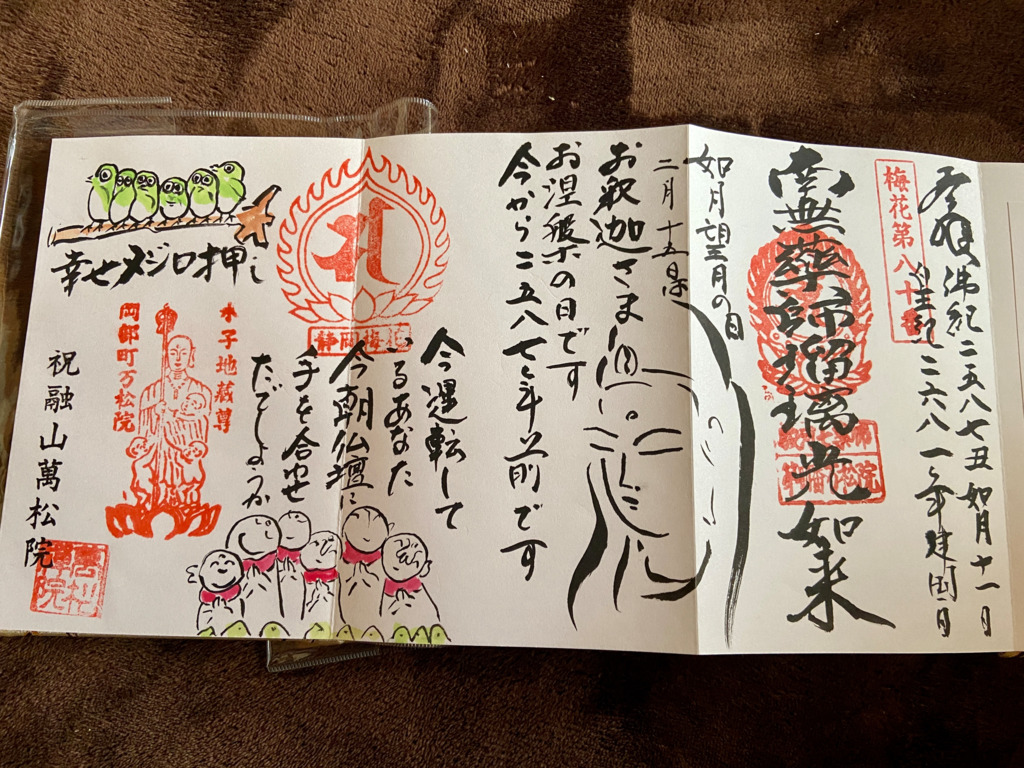 奉拝
佛紀二五八七丑如月十一日
皇紀二六八一年建国日
梅花第八十番
南無藥師瑠璃光如来
如月望月の日
二月十五日
お釈迦さま
お涅槃の日です
今から二五八七年以前です
今運転して
いるあなた
今朝仏壇に
手を合せ
たでしょうか
静岡梅花
幸せメジロ押し
水子地蔵尊
岡部町万松院
祝融山萬松院